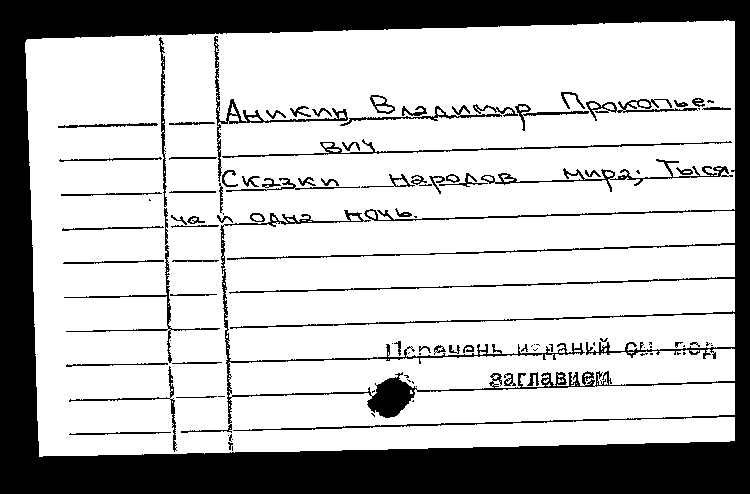 Аникин, Владимир Прокопье-
вич
Сказки народов мира; Тыся-
ча и одна ночь.
Перечень изданий см. под
заглавием